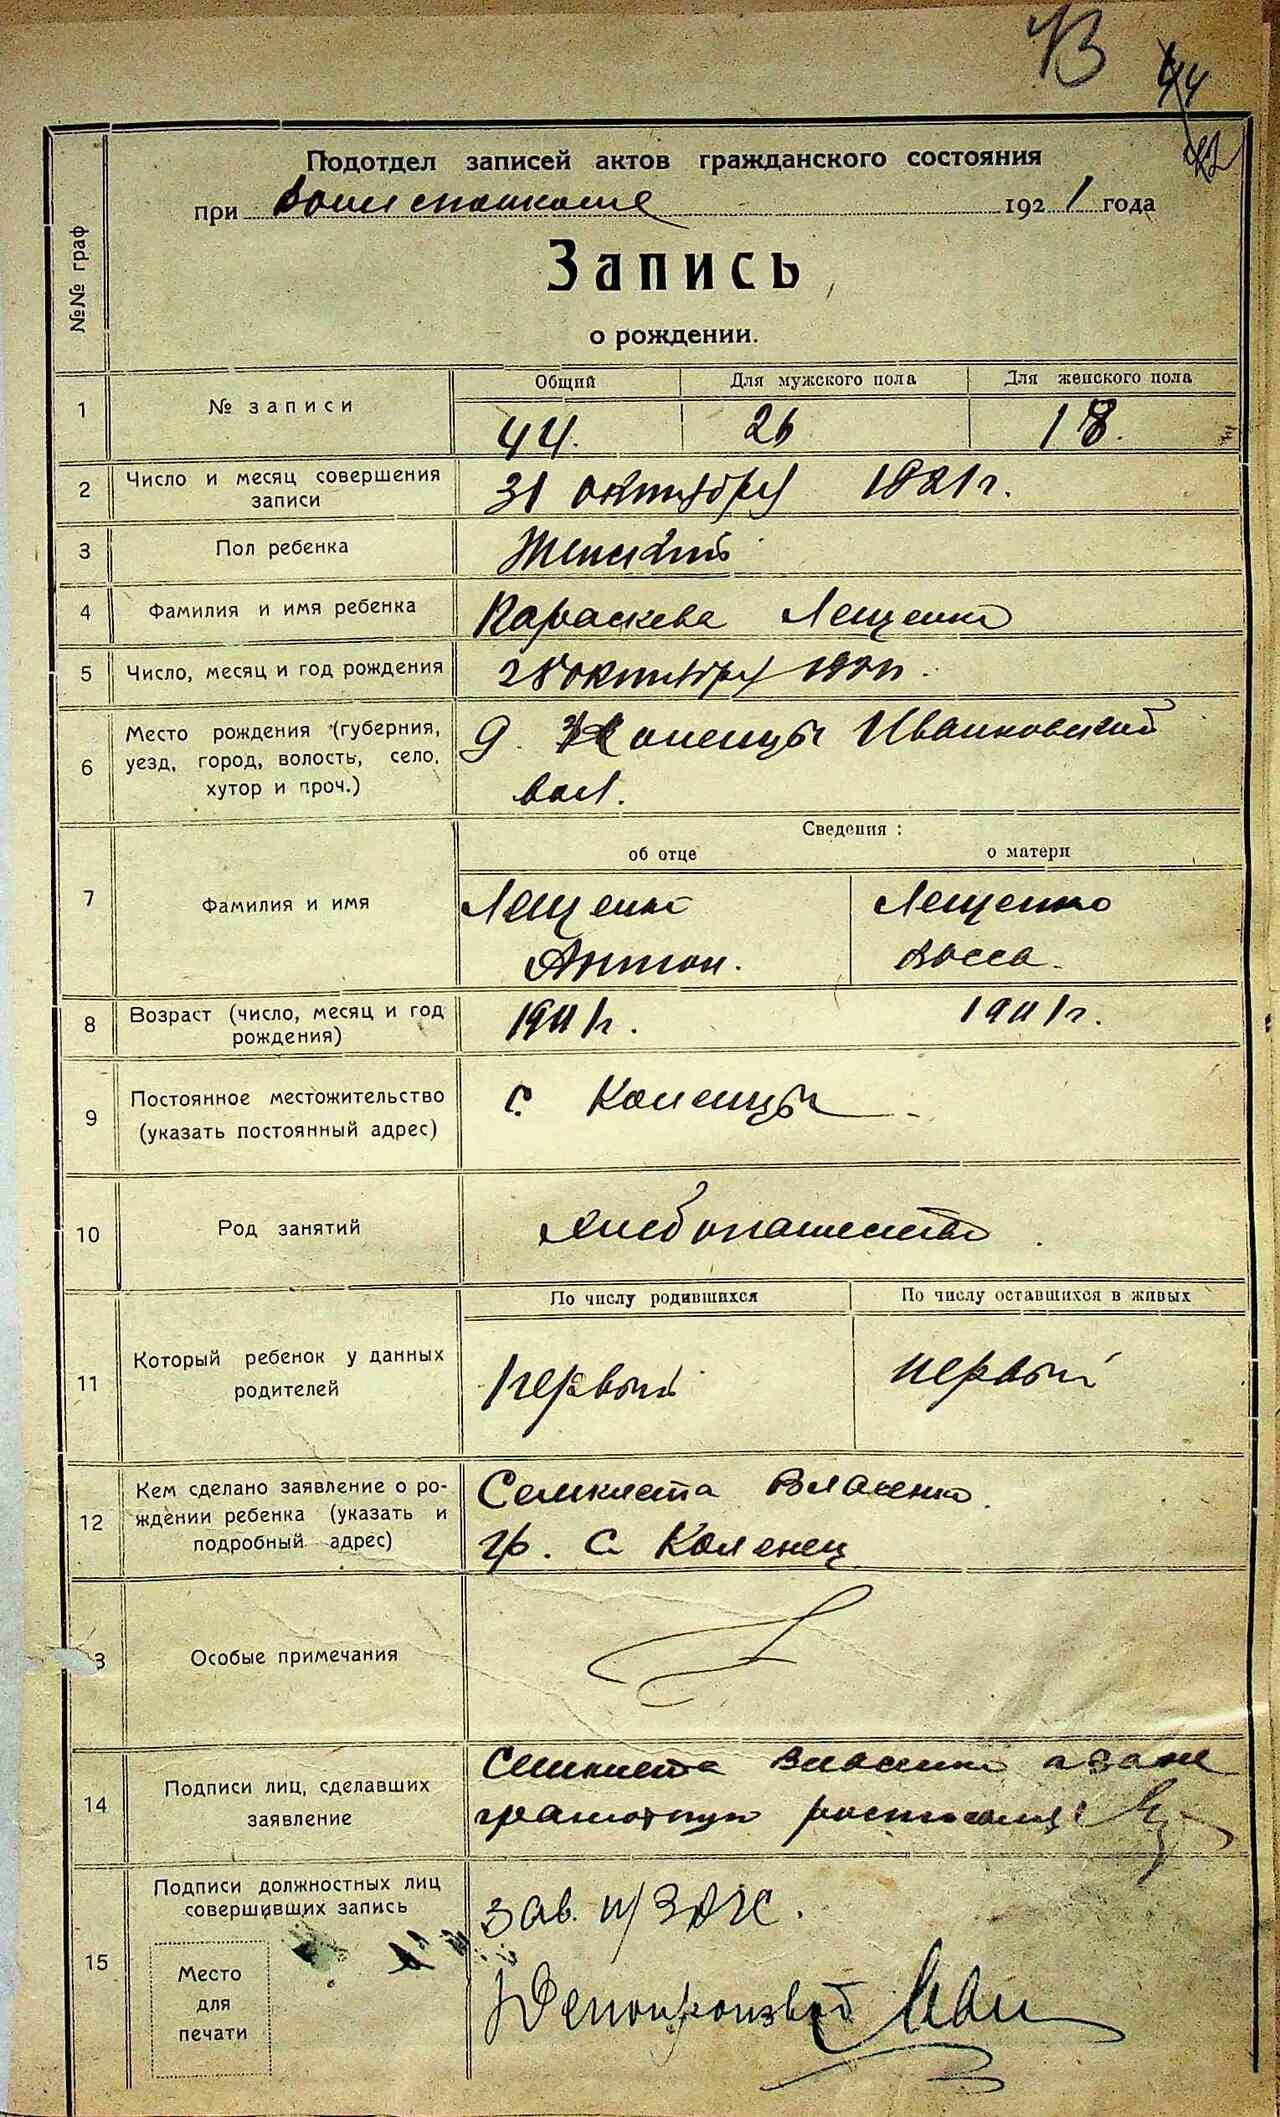 43
44
42
Подотдел записей актов гражданского состояния
при Волисполкоме 1921 года
№№ граф
Запись
о рождении.
Общий Для мужского пола Для женского пола
1 № записи
44. 26 18.
2 Число и месяц совершения
записи
31 октября 1921 г.
3 Пол ребенка Женский
4 Фамилия и имя ребенка Параскева Лещенко
5 Число, месяц и год рождения 28 октября 1921 г.
6 Место рождения (губерния,
уезд, город, волость, село,
хутор и проч.)
Коленцы Иванковской
вол.
Сведения:
об отце о матери
7 Фамилия и имя
Лещенко Лещенко
Антон. Васса.
8 Возраст (число, месяц и год
рождения)
9 Постоянное местожительство
(указать постоянный адрес)
с. Коленцы
10 Род занятий хлебопашество
По числу родившихся По числу оставшихся в живых
11 Который ребенок у данных
родителей
первый первый
12 Кем сделано заявление о ро-
ждении ребенка (указать и
подробный адрес)
Власенко.
гр. с. Коленец
3 Особые примечания
14 Подписи лиц, сделавших
заявление
Власенко а за не
грамотную
15 Подписи должностных лиц
совершивших запись
Место
для
печати
Зав. п/ЗАГС.
Делопроизвод